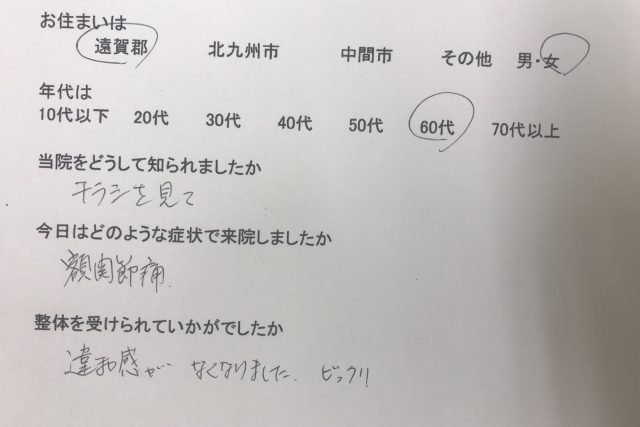 お住まいは
遠賀郡 北九州市 中間市 その他 男・女
年代は
10代以下 20代 30代 40代 50代 60代 70代以上
当院をどうして知られましたか
チラシを見て
今日はどのような症状で来院しましたか
顎関節痛.
整体を受けられていかがでしたか
違和感が なくなりました. ビックリ